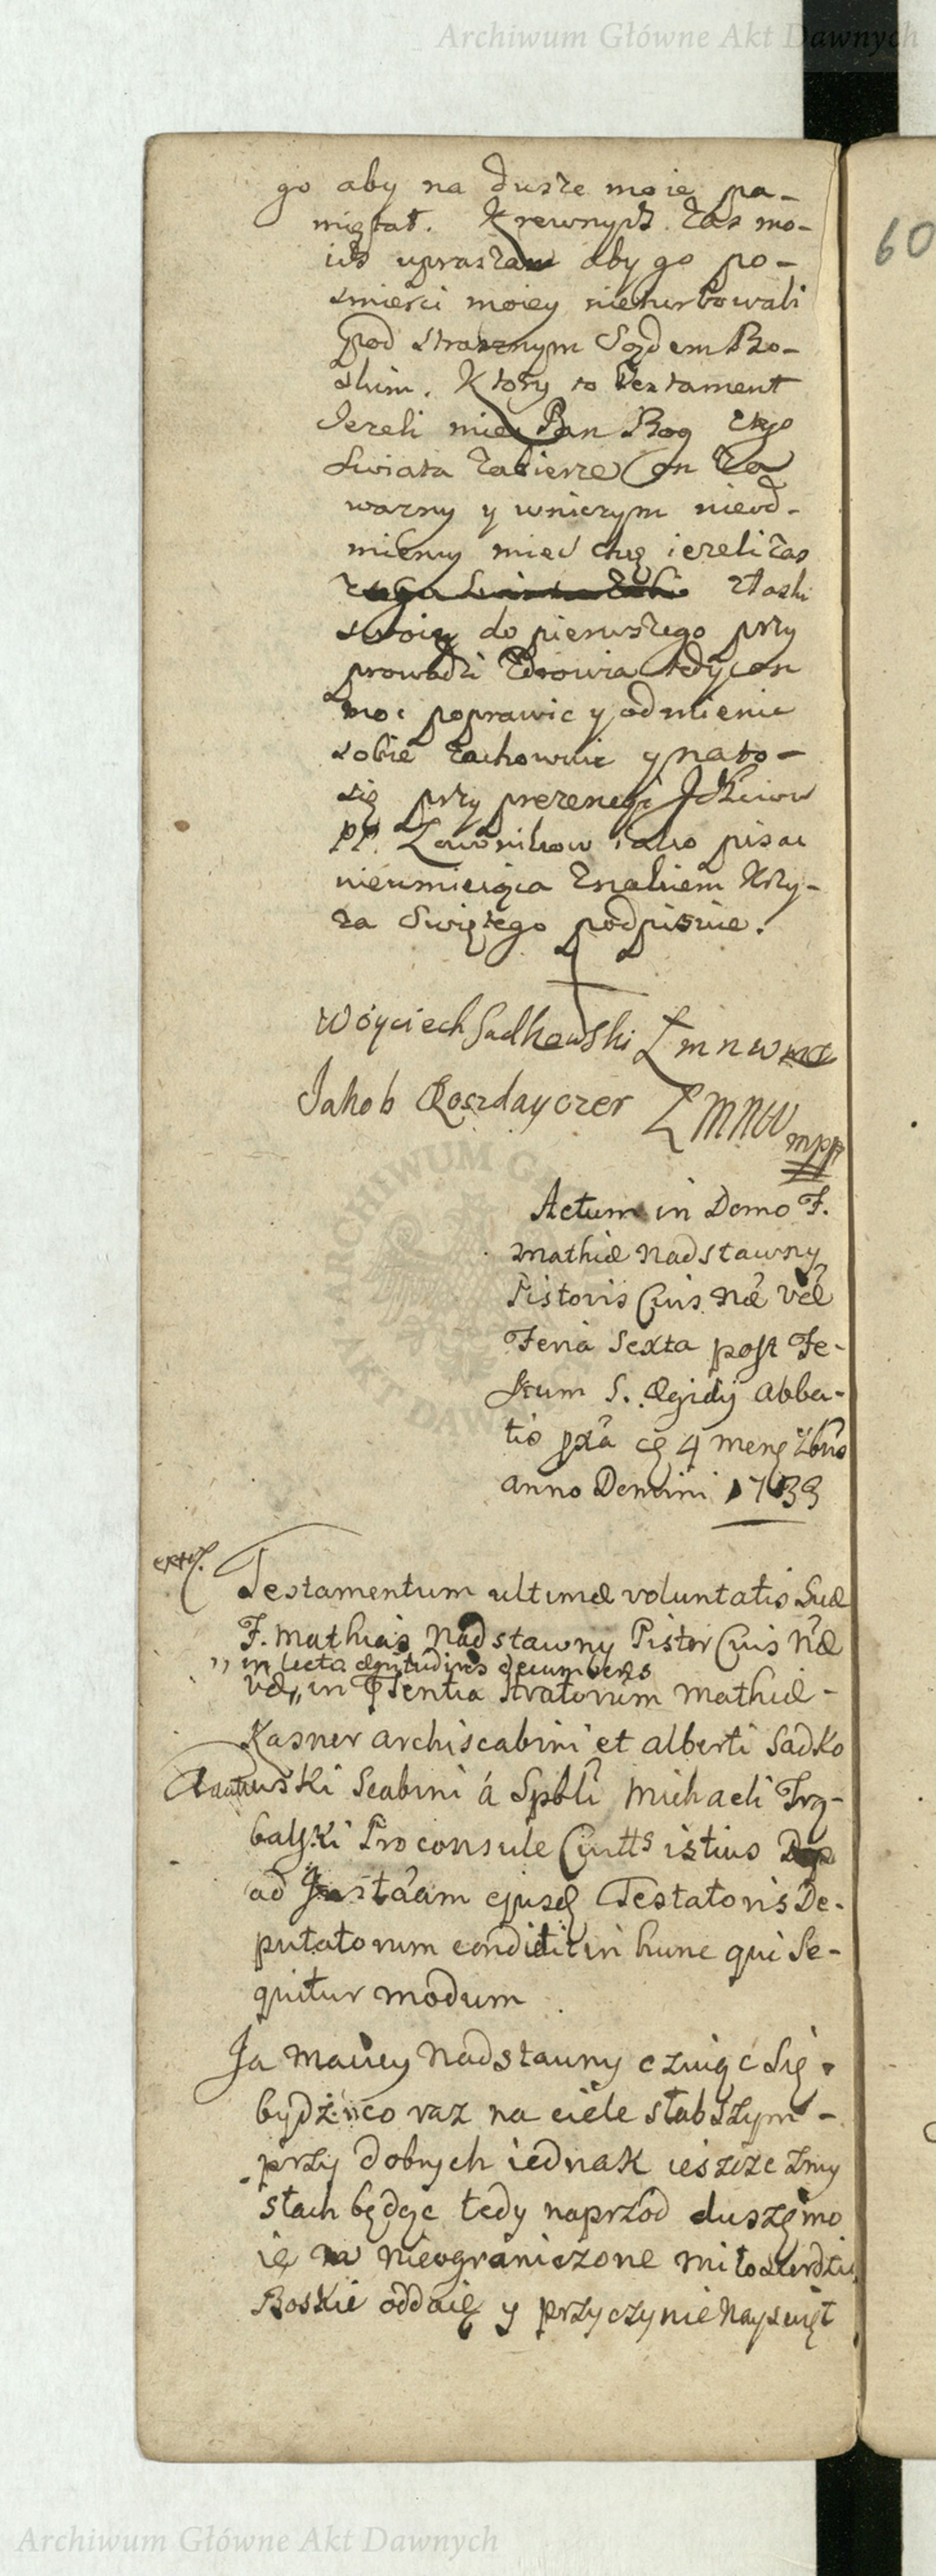 Archiwum Główne Akt Dawnych
60
go aby na dusze moie pa-
miętał. Krewnych zas mo-
ich upraszam aby go po-
smierci moiey nieturbowali
pod strasznym Sądem Bo-
skim. Ktory to Testament
Jezeli mię Pan Bog ztego
Swiata zabierze on za
wazny y wniczym nieod-
mienny miec chcę iezeli zas
złaski
swoiey do pierwszego przy
prowadzi Zdrowia tedy
moc poprawic y odmienic
sobie zachowuie y nato-
się przy prezencyi
PP. Ławnikow iako pisac
nieumieiąca Znakiem Krzy-
za Swiętego podpisuie.
Woyciech Sadkowski Ł m n w
Jakob Ł M N W mpp
Actum in Domo F.
Mathiæ Nadstawny
Pistoris Cuis Næ Væ
Feria Sexta post Fe-
stum S. Ægidij Abba-
tis
Anno Domini 1739
Testamentum ultimæ voluntatis Suæ
F. Mathias Nadstawny Pistor Cuis Næ
,, in lecto ægritudinis decumbens
Væ,, in Psentia Stratorum Mathiæ -
Kasner archiscabini et alberti Sadko
wski Scabini á Spbli Michaeli Trę-
balski Proconsule Cuitts istius
ad Instãam ejusd Testatoris De-
putatorum condidit in hunc qui Se-
quitur modum
Ja Maciey Nadstawny czuiąc Się
bydź co raz na ciele słabszym -
przy dobrych iednak ieszcze zmy
słach będąc tedy naprzod duszę mo
ię na nieograniczone miłosierdzie
Boskie oddaię y przyczynie Nayswięt
Archiwum Główne Akt Dawnych